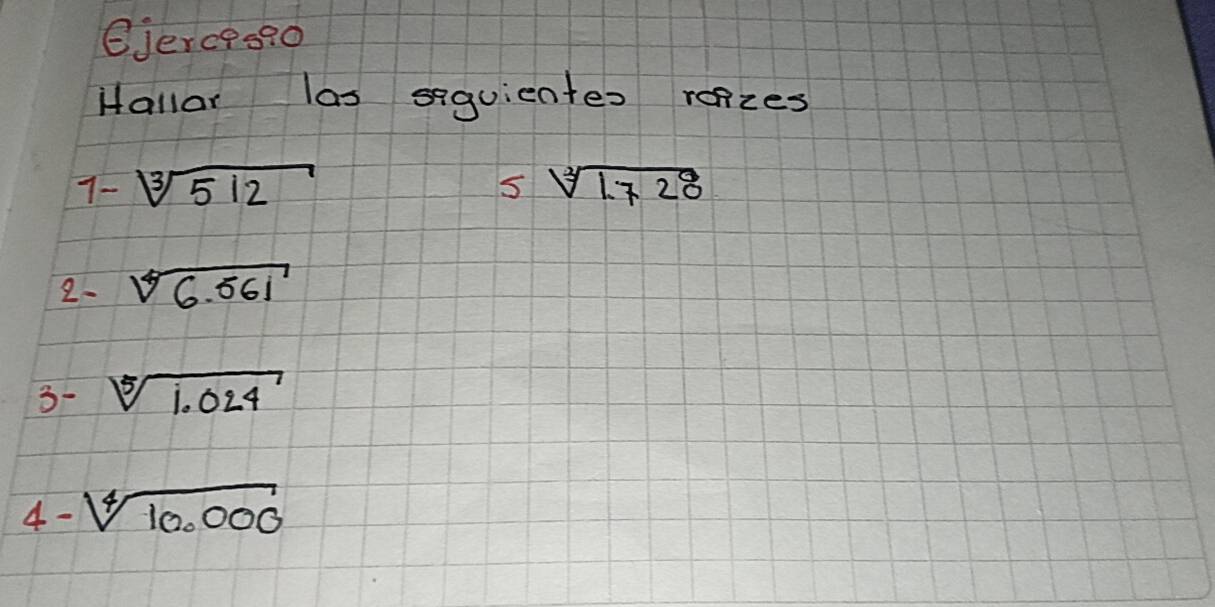 Ejercicio
Hallar las siguientes raizes
1- ∛512 5 ∛1.728
2- ∜6.561
3- ⁵√1.024
4- ∜10.000